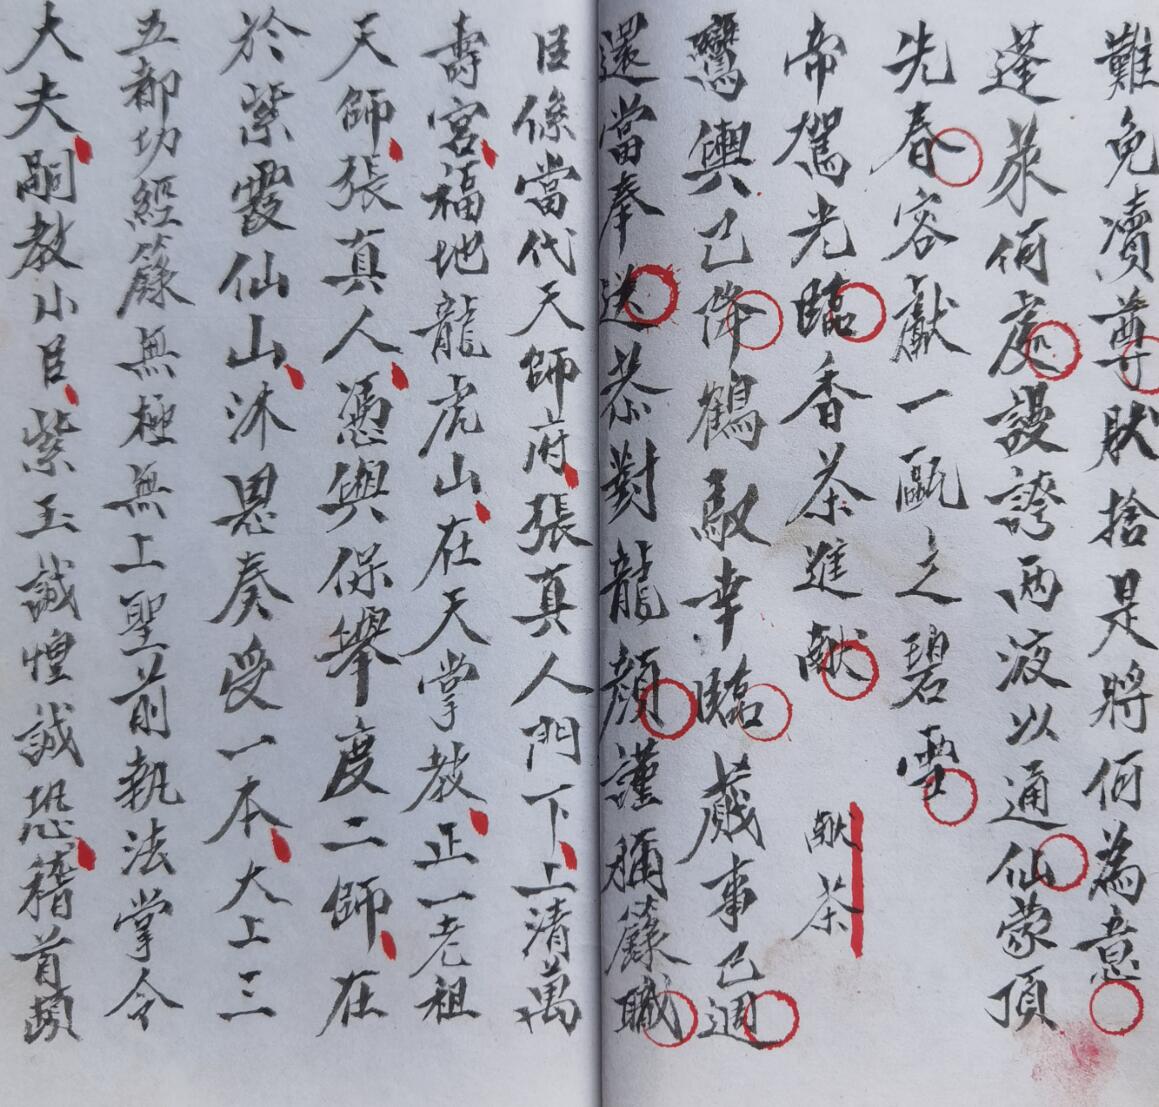 難免瀆尊耽捨是將何為意
蓬萊何處謾誇兩液以通仙蒙頂
先春容獻一甌之碧雪
帝駕光臨香茶進献
献茶
鸞輿已降鶴馭幸臨蕆事已週
還當奉送恭對龍顏謹稱籙職
臣係當代天師府張真人門下上清萬
壽宮福地龍虎山在天掌教正一老祖
天師張真人憑與保舉度二師在
於紫霞仙山沐恩奏受一本大上三
五都功經籙無極無上聖前執法掌令
大夫嗣教小臣紫玉誠惶誠恐稽首頓